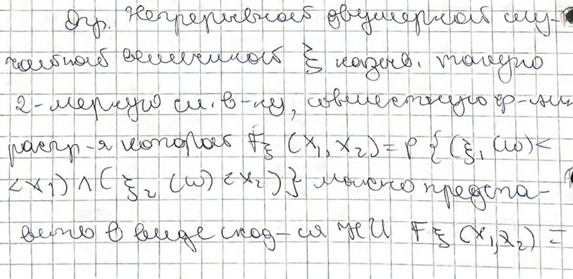 Опр. Непрерывной двумерной слу-
чайной величиной ξ назыв. такую
2-мерную сл. в-ну, совместную ф-ция
распр-я которой Fξ (x₁, x₂) = P {(ξ₁ (ω) <
< x₁) ∧ (ξ₂ (ω) < x₂)} можно предста-
вить в виде сход-ся НИ Fξ (x₁, x₂) =